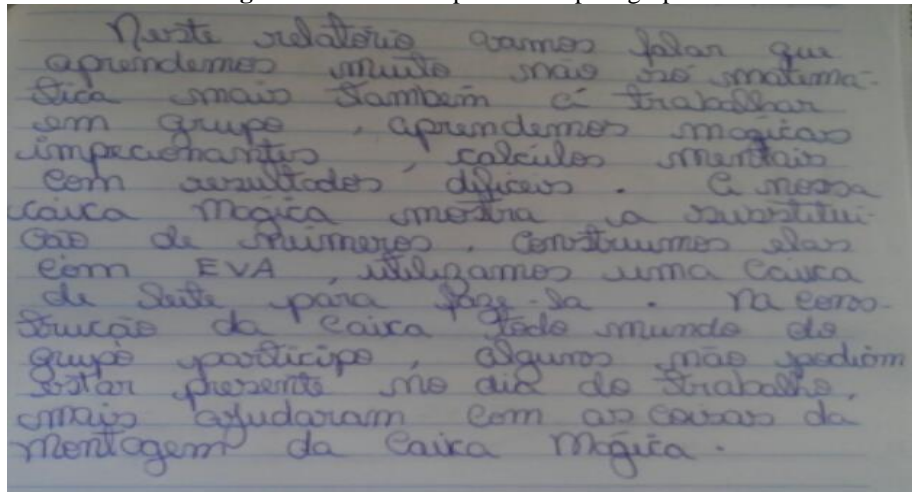 Neste relatório vamos falar que
aprendemos muito não só matema-
tica mais também á trabalhar
em grupo , aprendemos magicas
impecionantes , calculos mentais
com resultados dificeis . A nossa
caixa magica mostra a substitui-
cão de números. Construimos elas
com EVA , utilizamos uma caixa
de leite para faze-la . Na cons-
trucão da caixa todo mundo do
grupo participo , alguns não podiam
estar presente no dia do trabalho,
mais ajudaram com as coisas da
montagem da caixa Mágica .